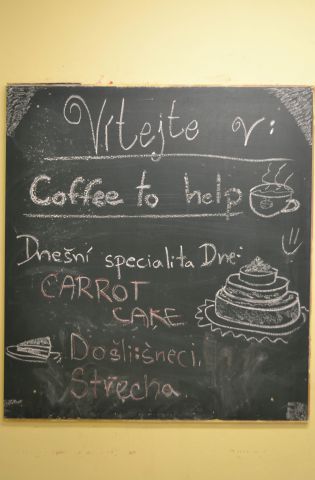 Vítejte v:
Coffee to help
Dnešní specialita Dne:
CARROT
CAKE
Došli: šneci,
Střecha